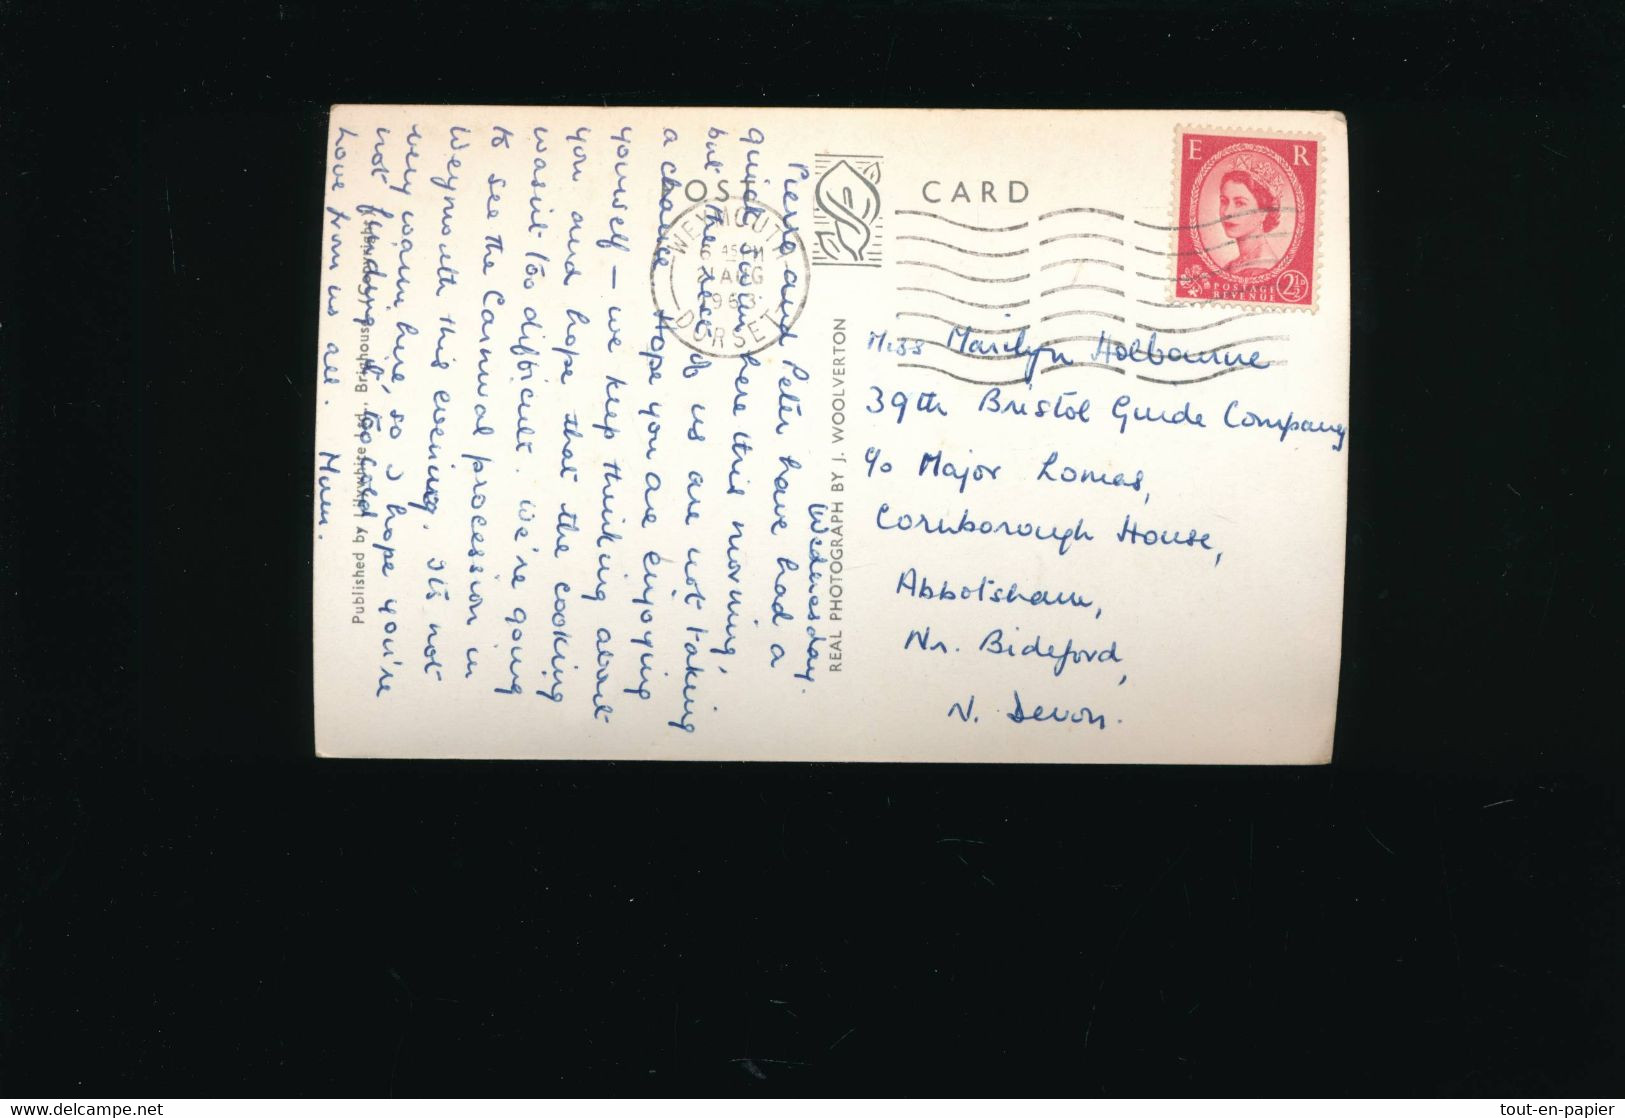 POST CARD
E R
2½D
POSTAGE
REVENUE
WEYMOUTH
6 45 PM
21 AUG
1963
DORSET
Wednesday.
Pierre and Peter have had a
quick swim here this morning,
but the rest of us are not taking
a chance. Hope you are enjoying
yourself – we keep thinking about
you and hope that the cooking
wasn't too difficult. We're going
to see the Carnival procession in
Weymouth this evening. It's not
very warm here, so I hope you're
not finding it too cold.
Love from us all. Mum.
REAL PHOTOGRAPH BY J. WOOLVERTON
Published by Lilywhite Ltd., Brighouse
Miss Marilyn Holbourne
39th Bristol Guide Company
c/o Major Lomas,
Cornborough House,
Abbotsham,
Nr. Bideford,
N. Devon.
tout-en-papier